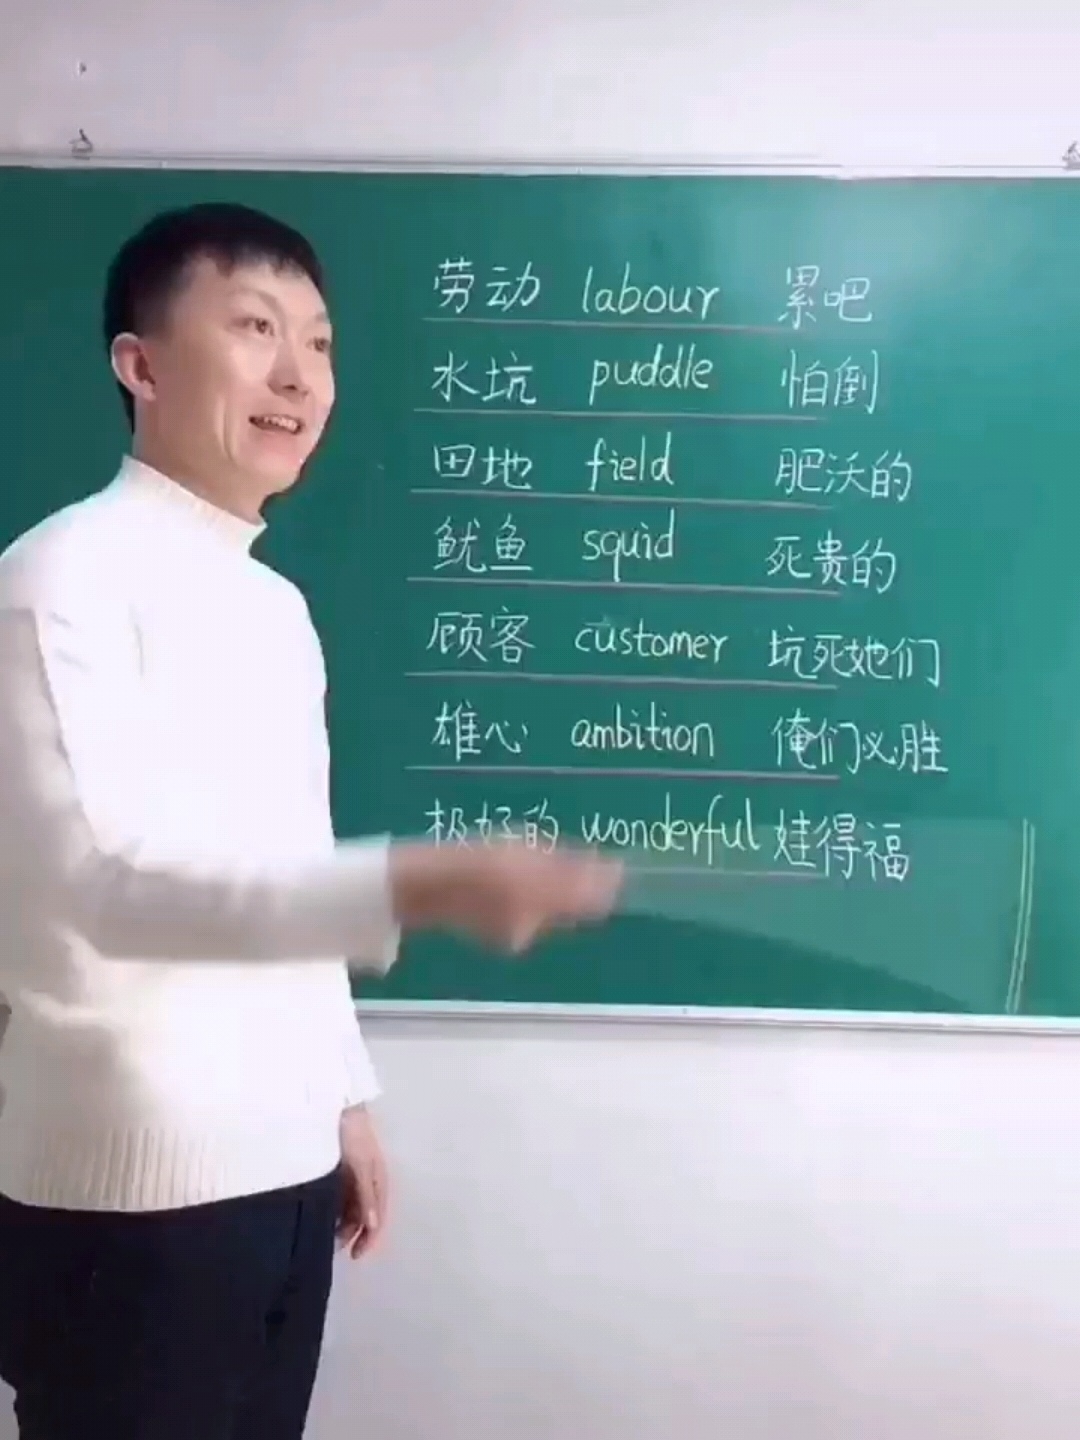 劳动 labour 累吧
水坑 puddle 怕倒
田地 field 肥沃的
鱿鱼 squid 死贵的
顾客 customer 坑死她们
雄心 ambition 俺们必胜
极好的 wonderful 娃得福